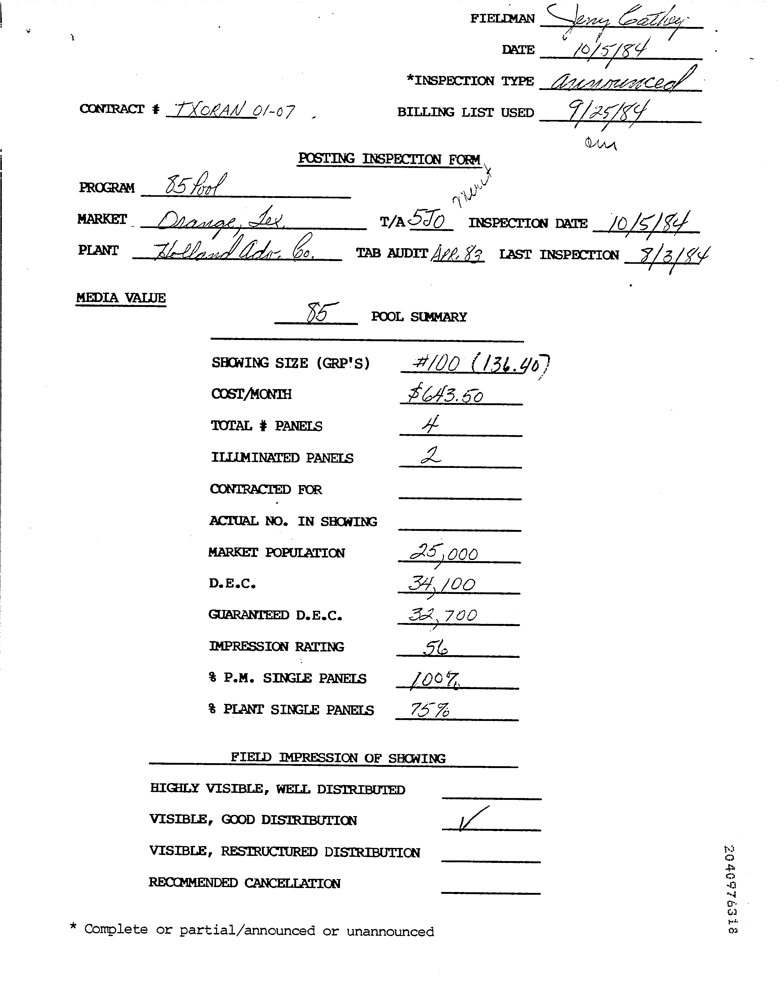 FIELDMAN Jerry Cathey
DATE 10/5/84
*INSPECTION TYPE announced
CONTRACT # TXORAN 01-07 BILLING LIST USED 9/25/84
POSTING INSPECTION FORM
PROGRAM 85 Pool Merit
MARKET Orange, Tex. T/A 5J0 INSPECTION DATE 10/5/84
PLANT Holland Adv. Co. TAB AUDIT Apr. 83 LAST INSPECTION 8/3/84
MEDIA VALUE
85 POOL SUMMARY
SHOWING SIZE (GRP'S) #100 (136.40)
COST/MONTH $643.50
TOTAL # PANELS 4
ILLUMINATED PANELS 2
CONTRACTED FOR
ACTUAL NO. IN SHOWING
MARKET POPULATION 25,000
D.E.C. 34,100
GUARANTEED D.E.C. 32,700
IMPRESSION RATING 56
% P.M. SINGLE PANELS 100%
% PLANT SINGLE PANELS 75%
FIELD IMPRESSION OF SHOWING
HIGHLY VISIBLE, WELL DISTRIBUTED
VISIBLE, GOOD DISTRIBUTION ✓
VISIBLE, RESTRUCTURED DISTRIBUTION
RECOMMENDED CANCELLATION
* Complete or partial/announced or unannounced
2040976318